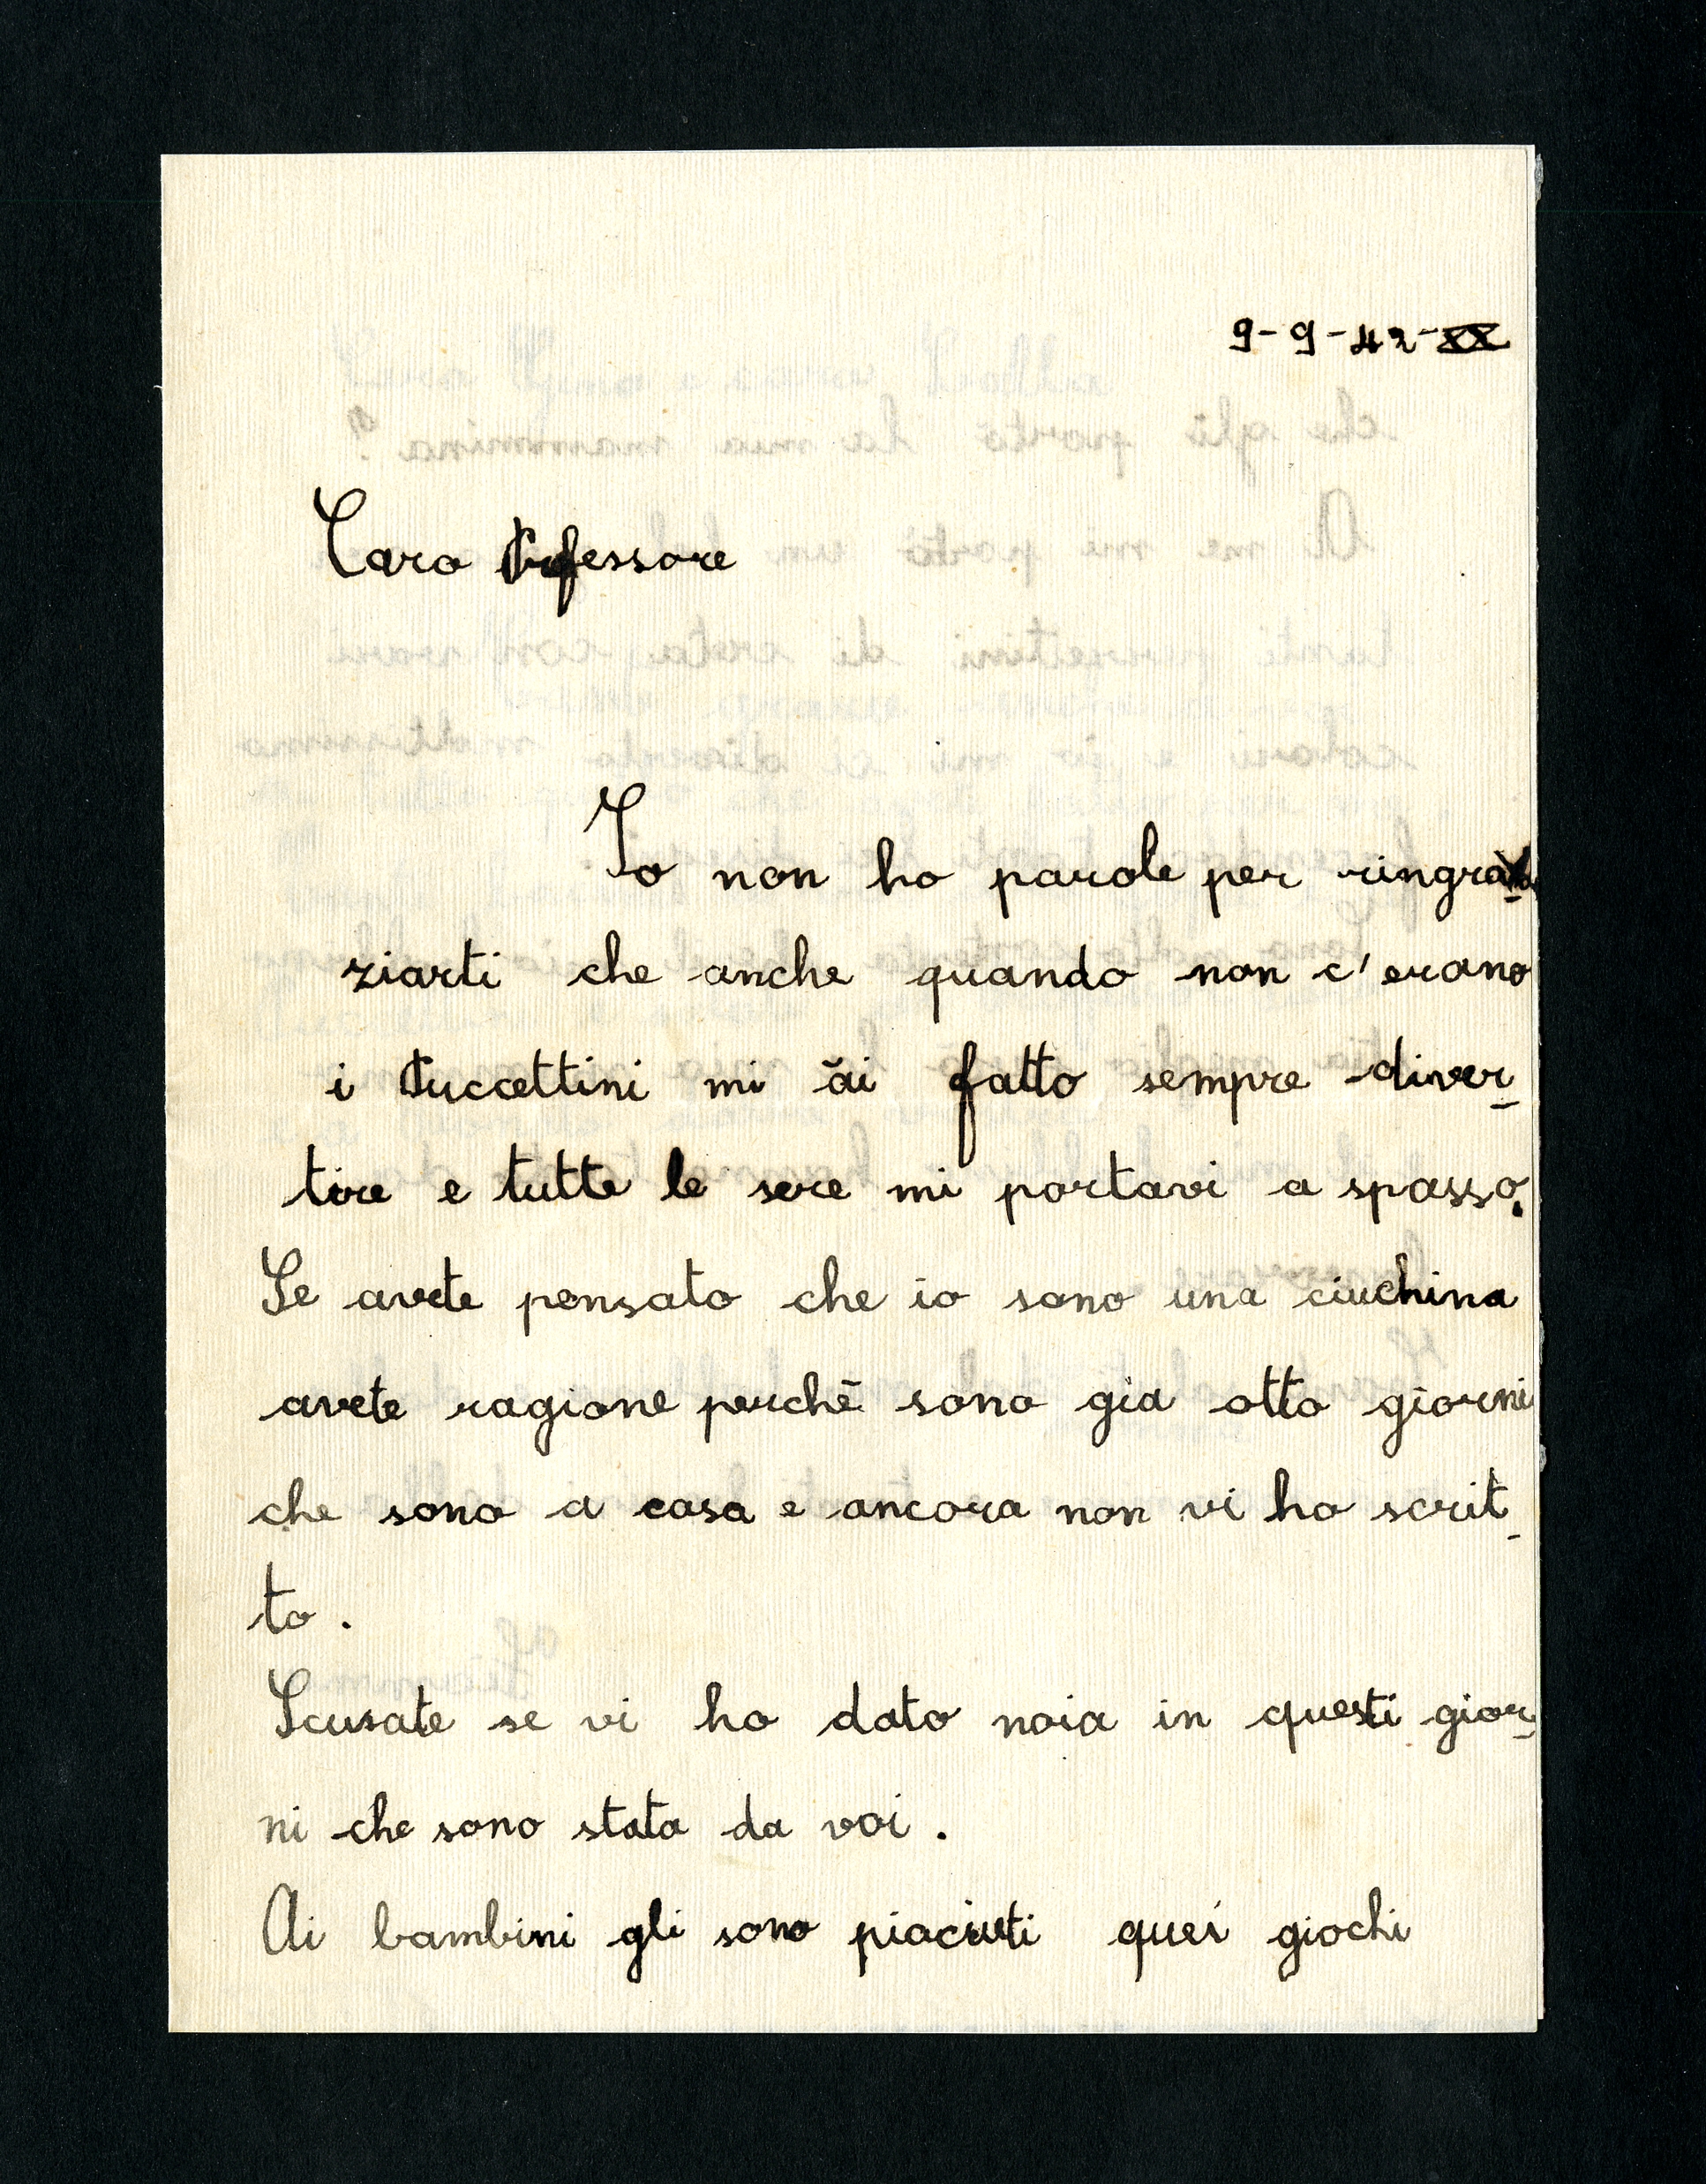 9-9-42-XX
Caro Professore
Io non ho parole per ringra-
ziarti che anche quando non c'erano
i Puccettini mi ài fatto sempre diver-
tire e tutte le sere mi portavi a spasso.
Se avete pensato che io sono una ciuchina
avete ragione perchè sono gia otto giorni
che sono a casa e ancora non vi ho scrit-
to.
Scusate se vi ho dato noia in questi gior-
ni che sono stata da voi.
Ai bambini gli sono piaciuti quei giochi